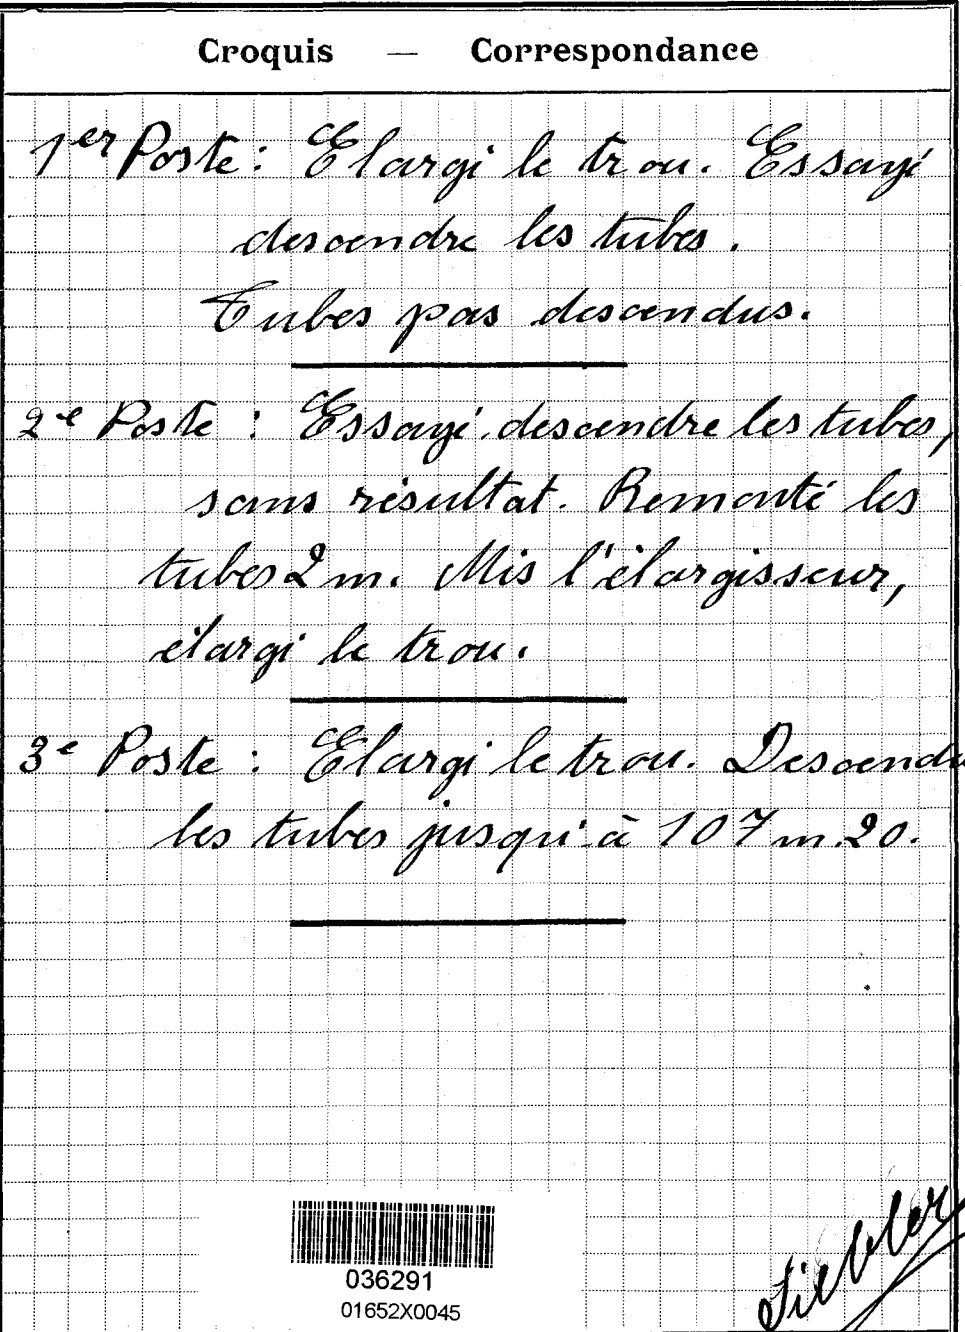 Croquis — Correspondance
1er Poste : Elargi le trou. Essayé
descendre les tubes.
Tubes pas descendus.
2e Poste : Essayé descendre les tubes,
sans résultat. Remonté les
tubes 2 m. Mis l'élargisseur,
élargi le trou.
3e Poste : Elargi le trou. Descendu
les tubes jusqu'à 107 m. 20.
036291
01652X0045